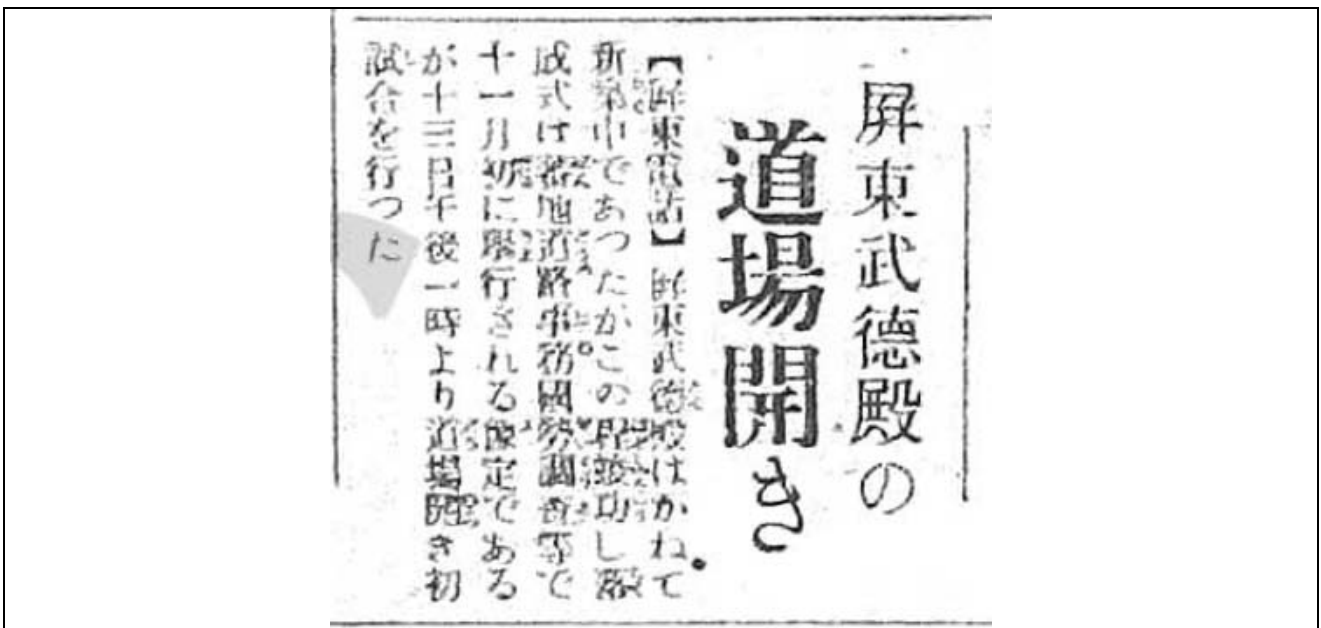 屛東武德殿の
道場開き
【屛東電話】屛東武德殿はかねて
新築中であつたがこの程竣功し落
成式は蕃地道路事務國勢調査等で
十一月初に擧行される豫定である
が十三日午後一時より道場開き初
試合を行つた